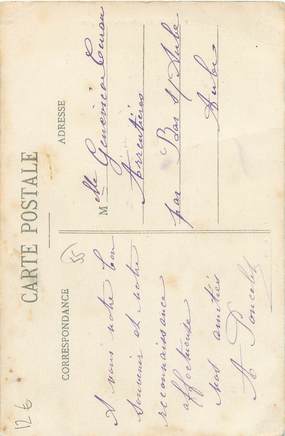 CARTE POSTALE
CORRESPONDANCE
ADRESSE
A vous notre bon
souvenir et notre
reconnaissance
affectueuse
nos amitiés
A Poncelet
Melle Geneviève
Arrentières
par Bar s/ Aube
Aube
55
12€